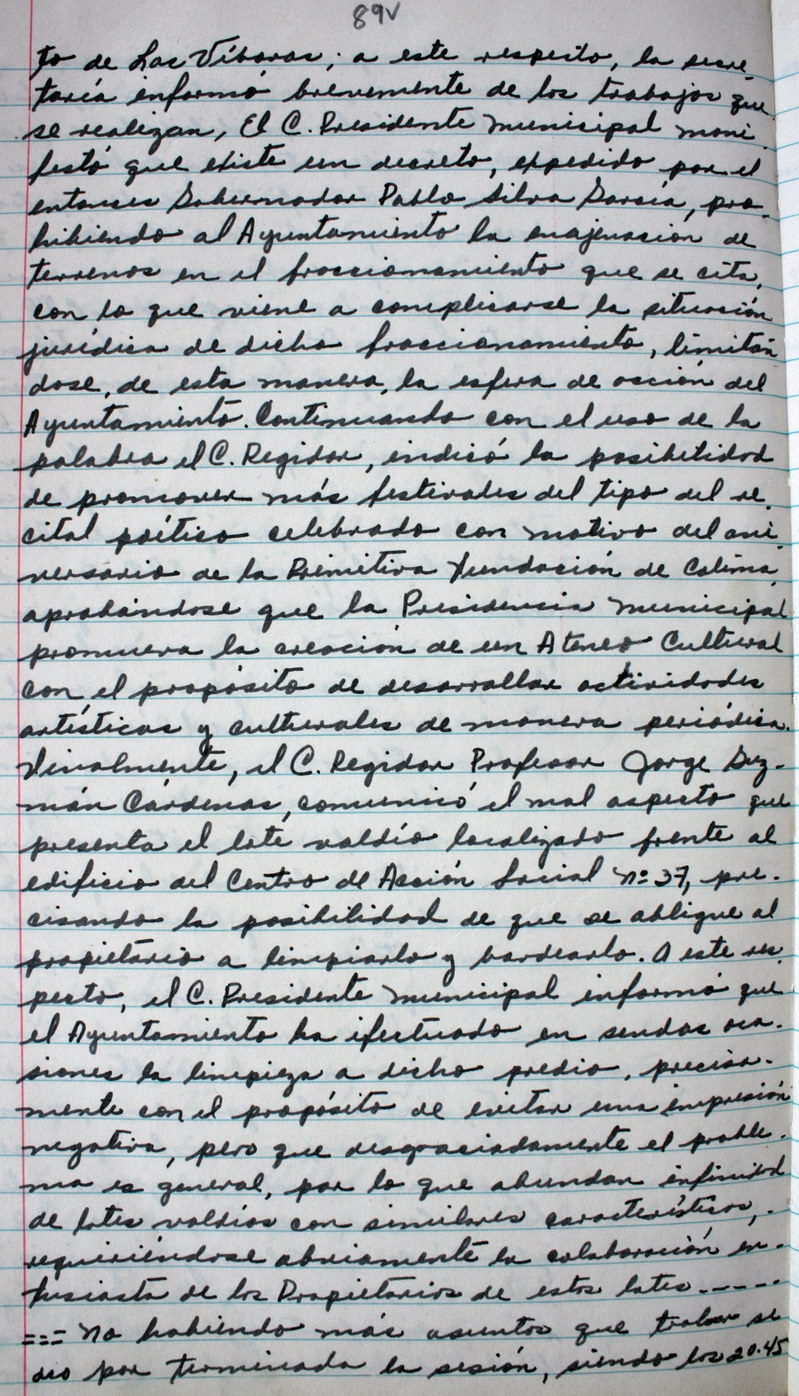 89v
to de Las Víboras; a este respecto, la secre-
taría informó brevemente de los trabajos que
se realizan, El C. Presidente Municipal mani-
festó que existe un decreto, expedido por el
entonces Gobernador Pablo Silva García, pro-
hibiendo al Ayuntamiento la enajenación de
terrenos en el fraccionamiento que se cita,
con lo que viene a complicarse la situación
jurídica de dicho fraccionamiento, limitán-
dose, de esta manera, la esfera de acción del
Ayuntamiento. Continuando con el uso de la
palabra el C. Regidor, indicó la posibilidad
de promover más festivales del tipo del re-
cital poético celebrado con motivo del ani-
versario de la Primitiva Fundación de Colima,
aprobándose que la Presidencia Municipal
promueva la creación de un Ateneo Cultural
con el propósito de desarrollar actividades
artísticas y culturales de manera periódica.
Finalmente, el C. Regidor Profesor Jorge Guz-
mán Cárdenas, comunicó el mal aspecto que
presenta el lote valdío localizado frente al
edificio del Centro de Acción Social No. 37, pre-
cisando la posibilidad de que se obligue al
propietario a limpiarlo y bardearlo. A este res-
pecto, el C. Presidente Municipal informó que
el Ayuntamiento ha efectuado en sendas oca-
siones la limpieza a dicho predio, precisa-
mente con el propósito de evitar una impresión
negativa, pero que desgraciadamente el proble-
ma es general, por lo que abundan infinidad
de lotes valdíos con similares características,-
requiriéndose obviamente la colaboración en-
tusiasta de los Propietarios de estos lotes.-----
=== No habiendo más asuntos que tratar se
dio por terminada la sesión, siendo las 20.45